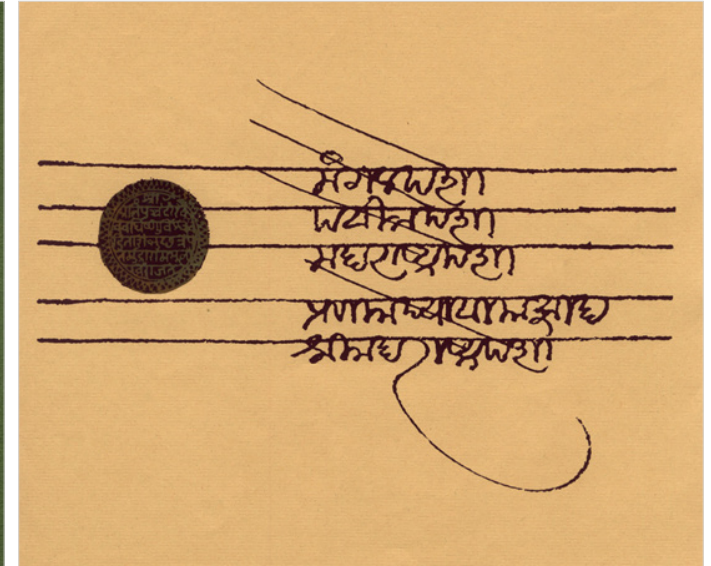 मंगल देशा
पवित्र देशा
महाराष्ट्र देशा
प्रणाम घ्यावा माझा हा
श्री महाराष्ट्र देशा